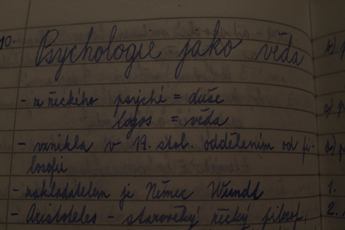 10.
Psychologie jako věda
- z řeckého psyché = duše
logos = věda
- vznikla v 19. stol. oddělením od fi-
losofie
- zakladatelem je Němec Wundt
- Aristoteles - starověký řecký filosof
1.
2.